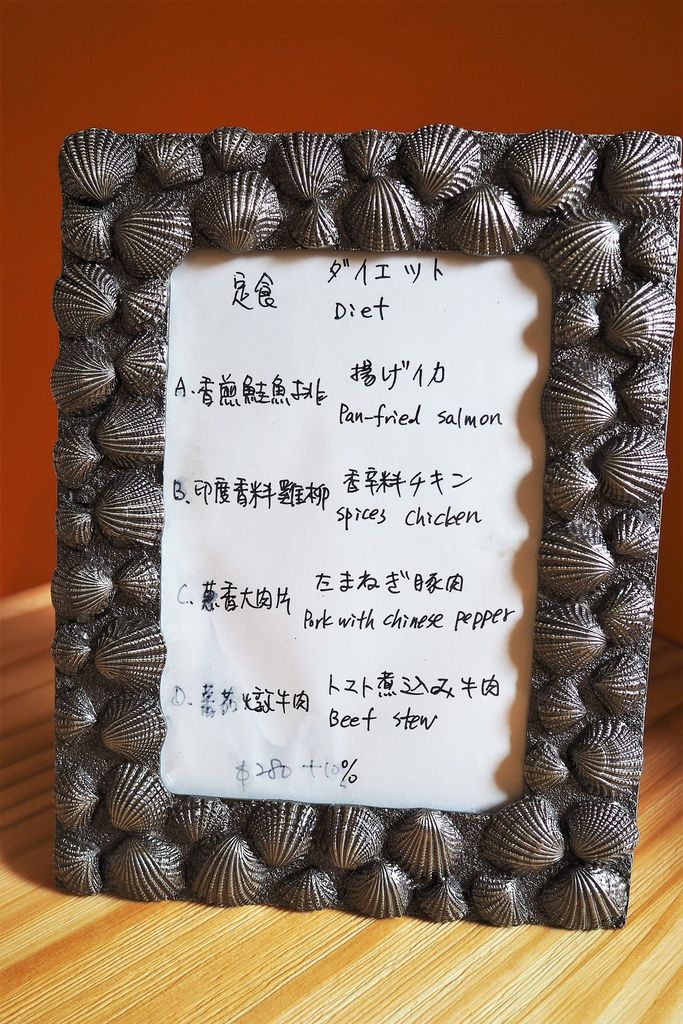 定食 ダイエット
Diet
A. 香煎鮭魚排 揚げイカ
Pan-fried salmon
B. 印度香料雞柳 香辛料チキン
spices chicken
C. 蔥香大肉片 たまねぎ豚肉
Pork with chinese pepper
D. 蕃茄燉牛肉 トマト煮込み牛肉
Beef stew
$280 +10%